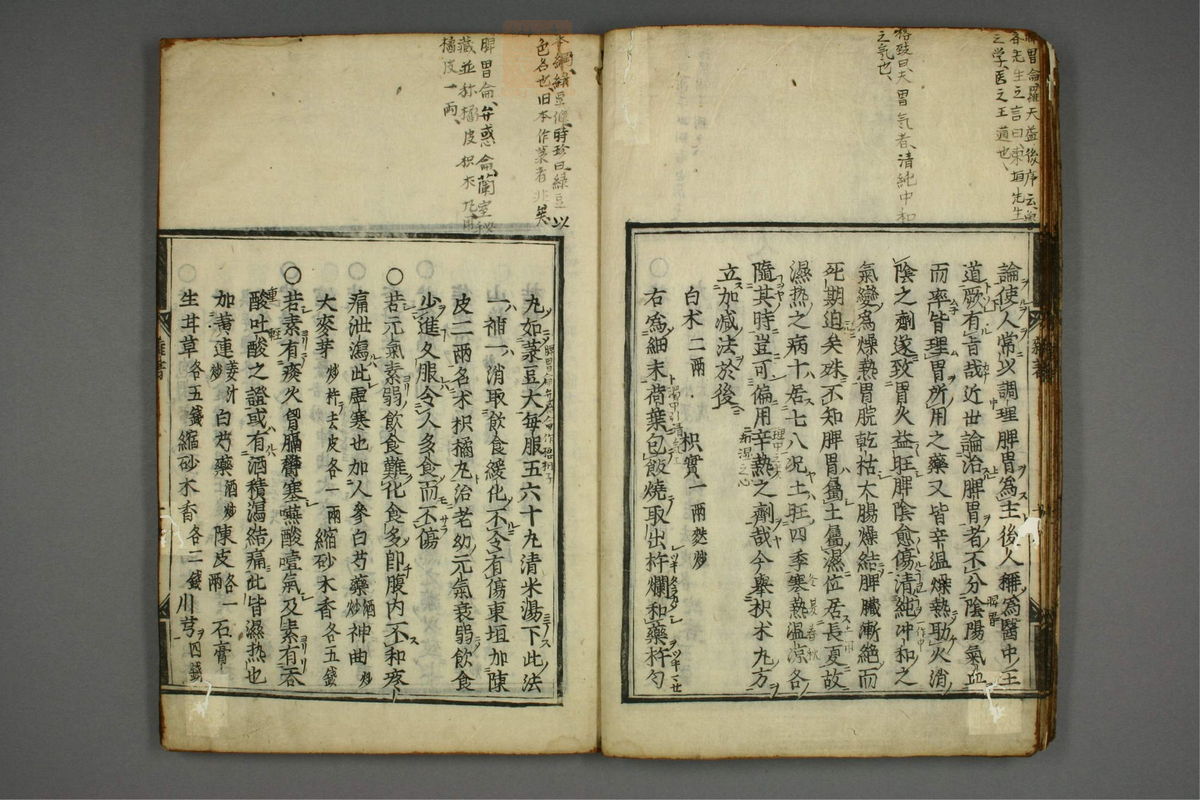 脾胃論羅天益後序云
吾先生之言曰東垣先生
之学医之王道也
格致曰夫胃氣者清純中和
之氣也
論使人常以調理脾胃爲主後人稱爲醫中王
道厥有旨哉近世論治脾胃者不分陰陽氣血
而率皆理胃所用之藥又皆辛温燥熱助火消
陰之劑遂致胃火益旺脾陰愈傷清純冲和之
氣變爲燥熱胃脘乾枯大腸燥結脾臓漸絶而
死期迫矣殊不知脾胃屬土屬濕位居長夏故
濕熱之病十居七八况土旺四季寒熱温凉各
隨其時豈可偏用辛熱之劑哉今舉枳术丸方
立加减法於後
白术二兩　枳實一兩麩炒
○右爲細末荷葉包飯燒取出杵爛和藥杵匀
本綱緑豆條時珍曰緑豆以
色名也旧本作菉者非矣
脾胃侖弁惑侖蘭室秘
藏並称橘皮枳术丸用
橘皮一兩
丸如菉豆大每服五六十丸清米湯下此法
一補一消取飲食緩化不令有傷東垣加陳
皮二兩名术枳橘丸治老幼元氣衰弱飲食
少進久服令人多食而不傷
○若元氣素弱飲食難化食多即腹内不和疼
痛泄瀉此虚寒也加人參白芍藥酒炒神曲炒
大麥芽炒杵去皮各一兩縮砂木香各五錢
○若素有痰火胷膈鬱塞嚥酸噎氣及素有吞
酸吐酸之證或有酒積瀉結痛此皆濕熱也
加黄連姜汁炒白芍藥酒炒陳皮各一兩石膏
生甘草各五錢縮砂木香各二錢川芎四錢